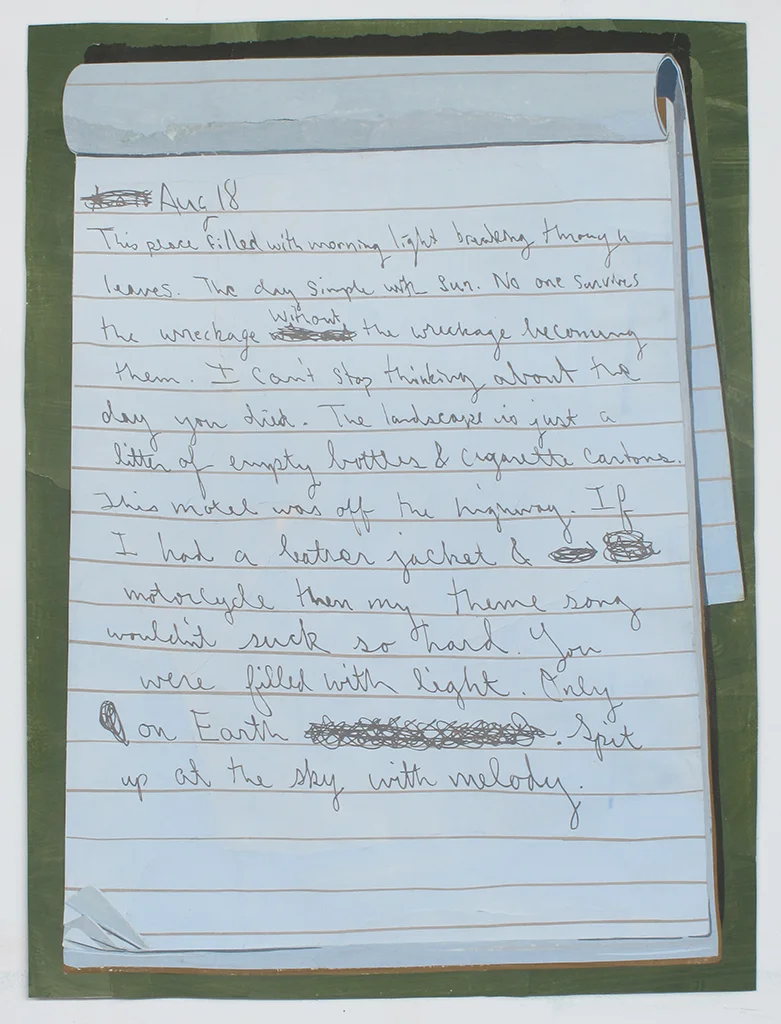 Aug 18
This place filled with morning light breaking through
leaves. The day simple with sun. No one survives
the wreckage without the wreckage becoming
them. I can't stop thinking about the
day you died. The landscape is just a
litter of empty bottles & cigarette cartons.
This motel was off the highway. If
I had a leather jacket &
motorcycle then my theme song
wouldn't suck so hard. You
were filled with light. Only
on Earth . Spit
up at the sky with melody.